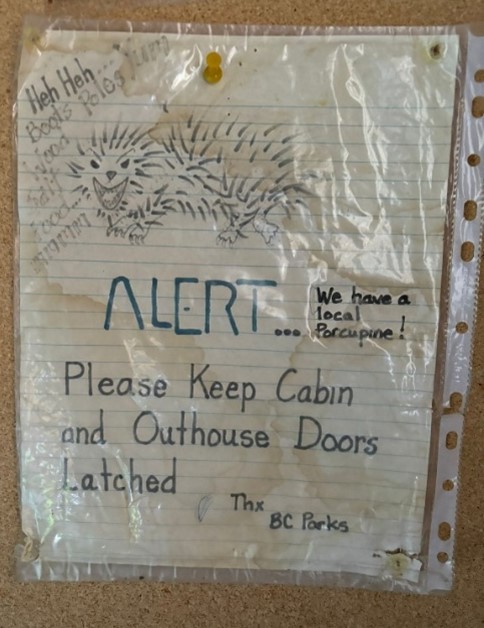 Heh Heh...
Boots Poles
Wood
Salt
Food...
ALERT...
We have a
local
Porcupine!
Please Keep Cabin
and Outhouse Doors
Latched
Thx
BC Parks